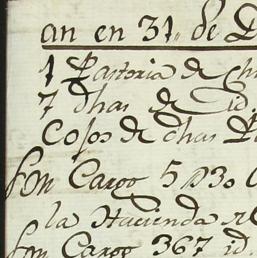 an en 31 de D
1 Pastoria de Ch
7 dhas de Cid.
Cosos de dhas P
son Cargo
la Hacienda
son Cargo 367 id.